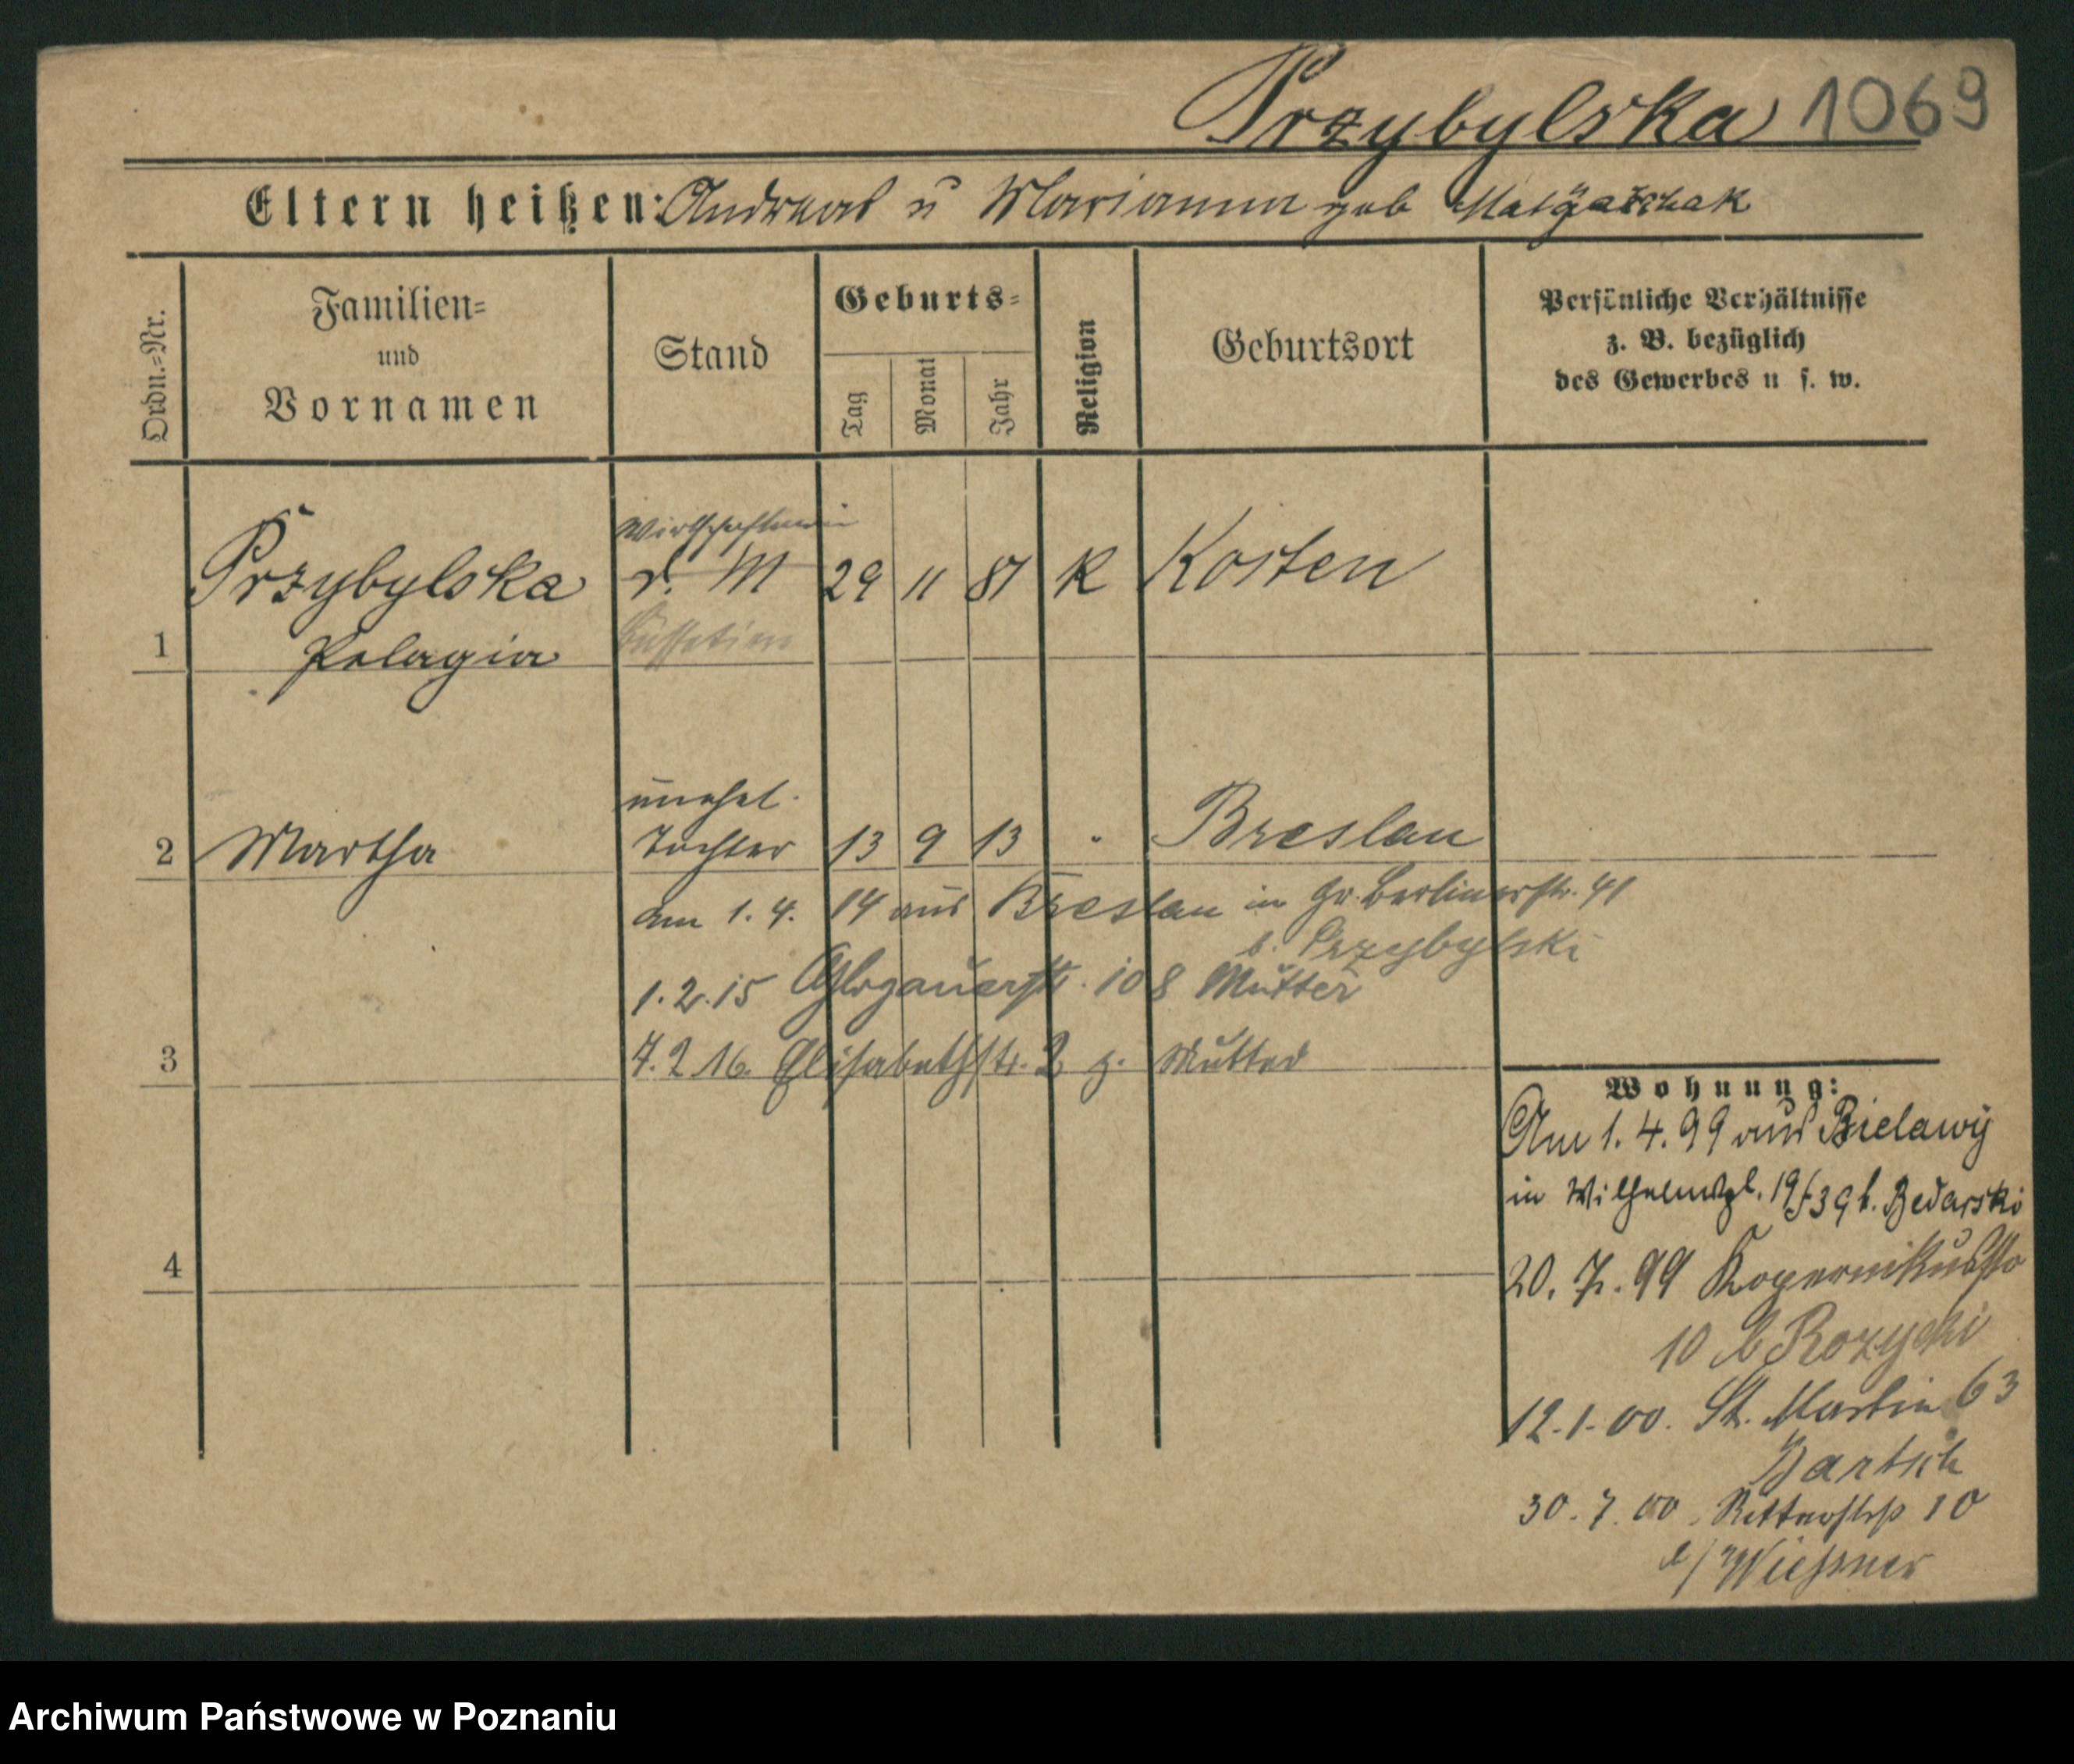 Przybylska 1069
Eltern heißen: Andreas u Marianna geb
Ordn.-Nr.
Familien-
und
Vornamen
Stand
Geburts-
Tag
Monat
Jahr
Religion
Geburtsort
Persönliche Verhältnisse
z. B. bezüglich
des Gewerbes u s. w.
Wirthschafterin
Przybylska d. M 29 11 81 K Kosten
1 Pelagia
unehel.
2 Martha Tochter 13 9 13 " Breslau
am 1. 4. 14 aus Breslau in Gr. Berlinerstr. 41
b. Przybylski
1. 2. 15 Glogauerstr. 108 Mutter
3 7. 2 16. Elisabethstr. 2 z. Mutter
Wohnung:
Am 1. 4. 99 aus Bielawy
in Wilhelmspl. 19 b. Bedarski
4 20. 7. 99 Kopernikusstr
10 b Rozycki
12. 1. 00. St. Martin 63
Bartsch
30. 7. 00. Ritterstr 10
b/ Wiessner
Archiwum Państwowe w Poznaniu